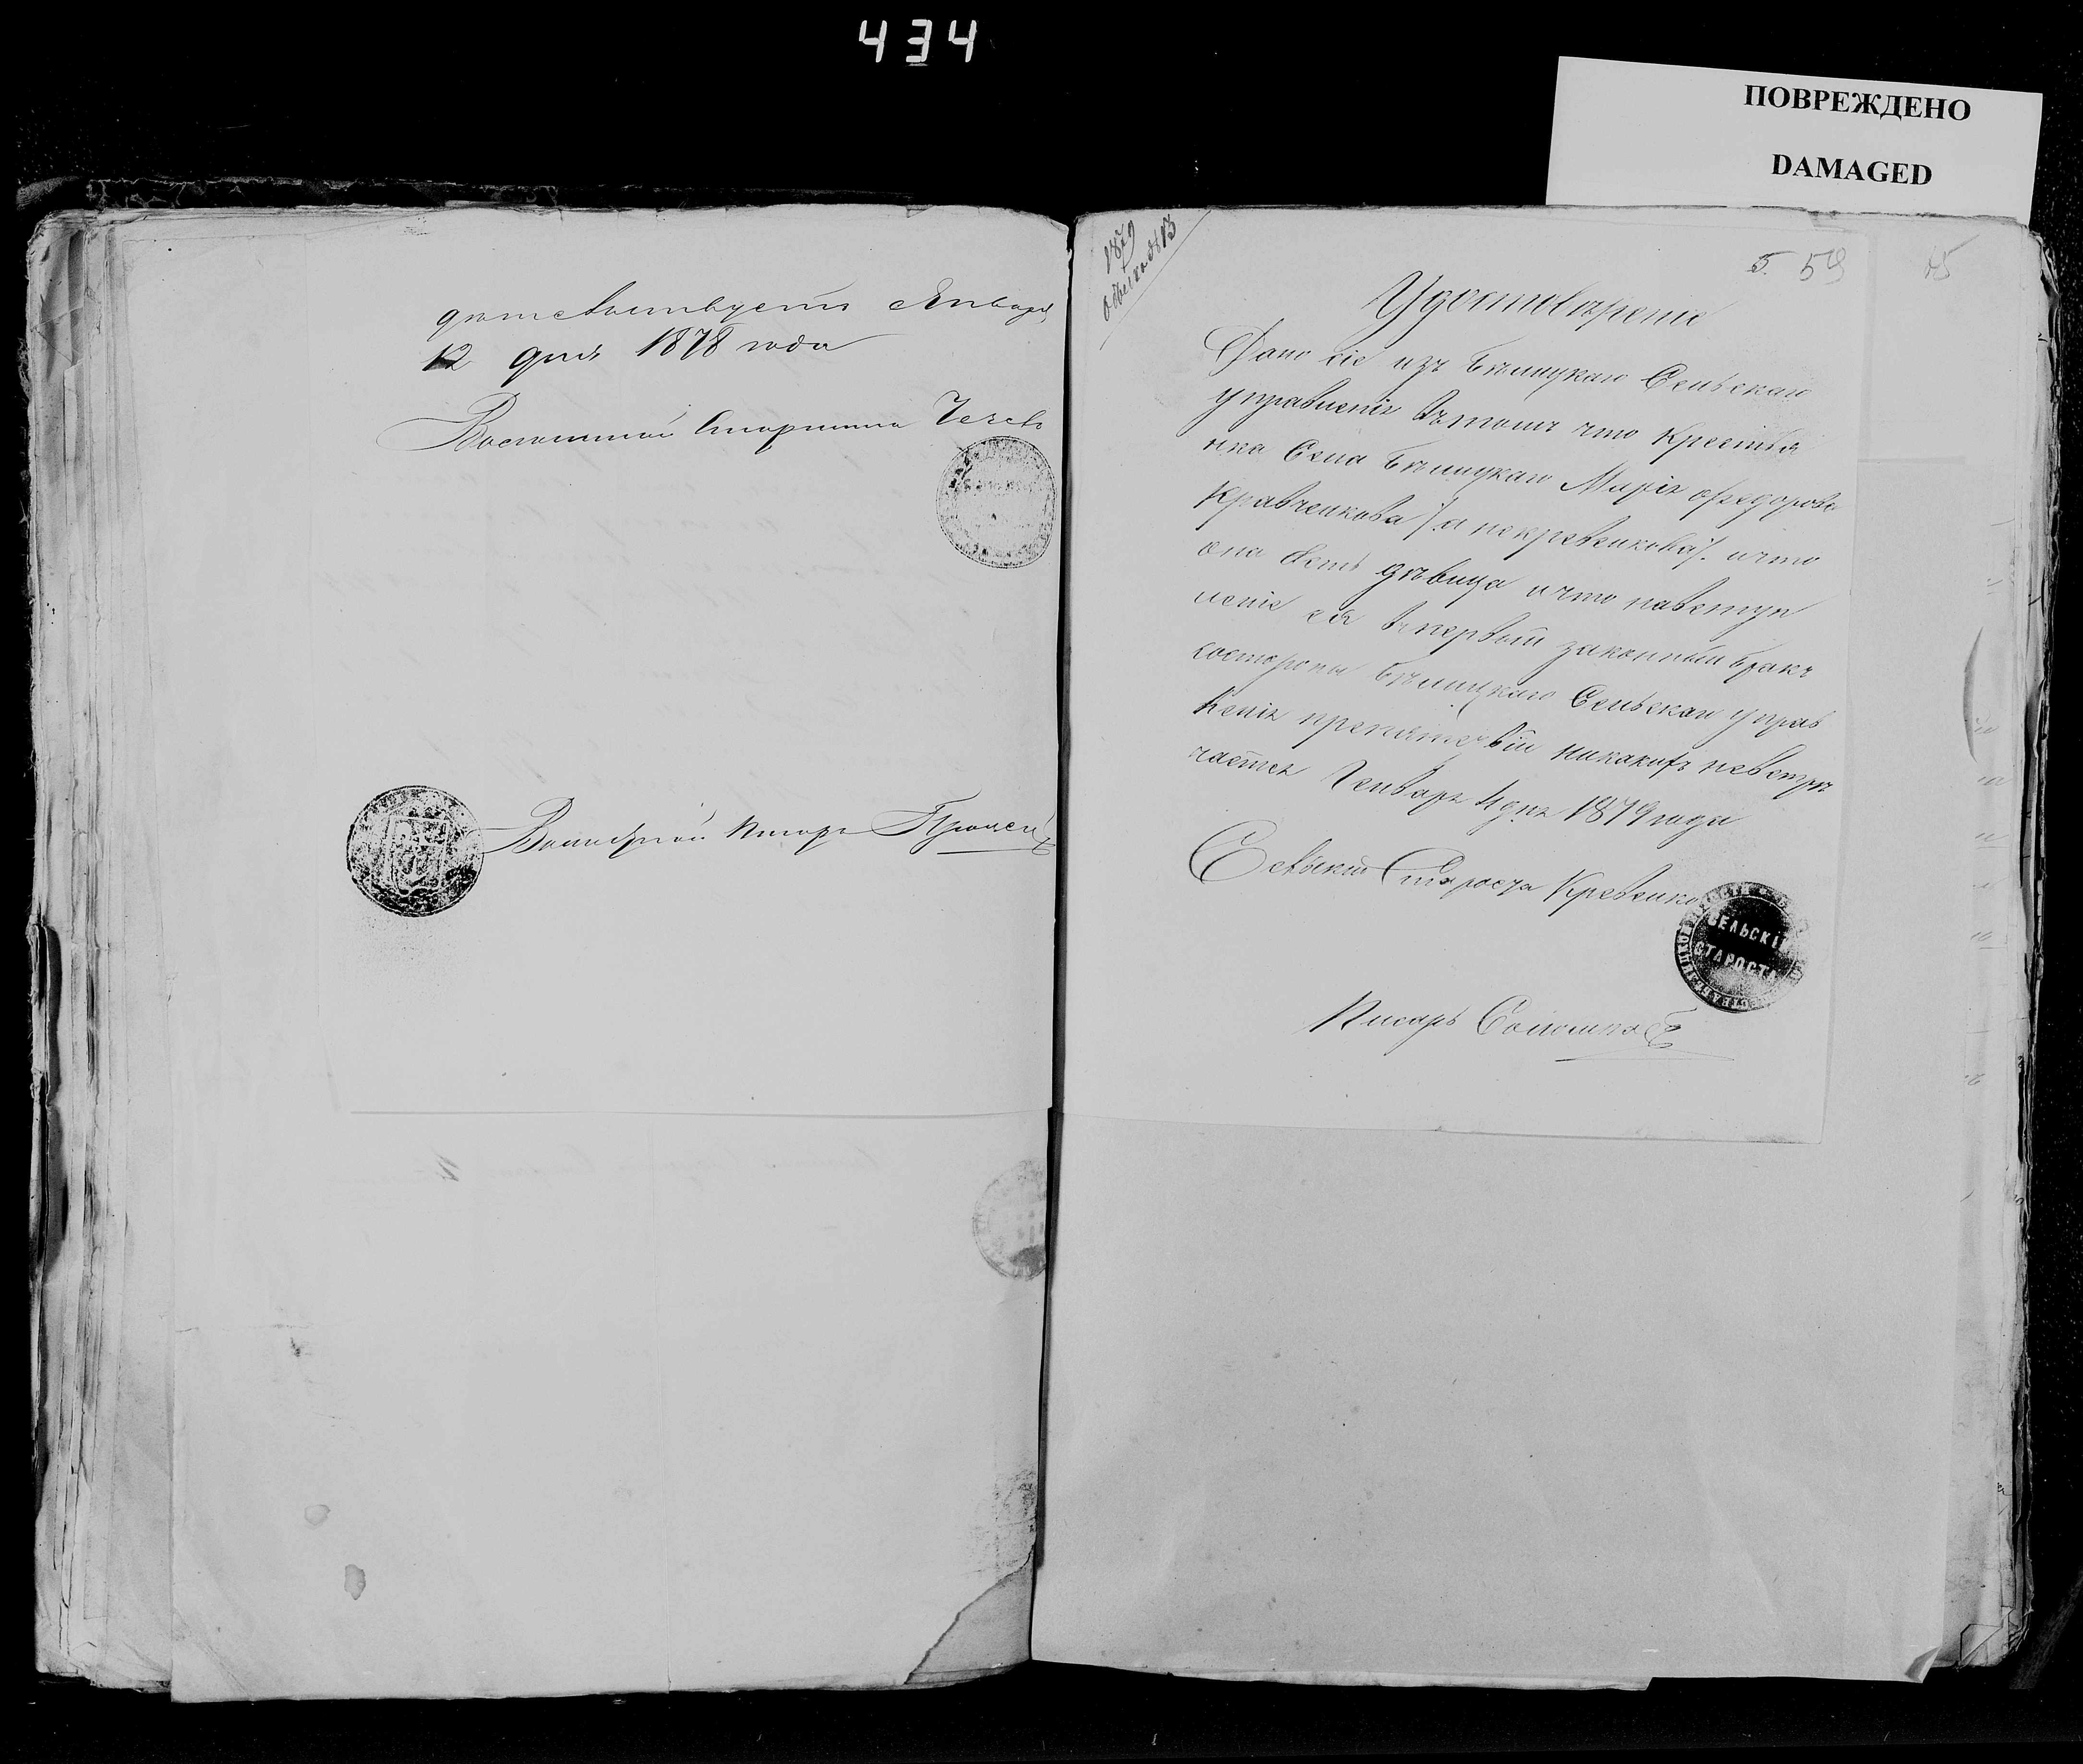 434
ПОВРЕЖДЕНО
DAMAGED
Января
12 дня 1878 года
Волостной Старшина
Волостной Писарь
1879
5. 59
Удостоверение
Дано сіе изъ Бѣлицкаго Сельскаго
управленія вътомъ что крестья
нка Села Бѣлицкаго Марія Федорова
Кравченкова /а некревенкова/. ичто
она есть дѣвица ичто навступ
леніе ея въ первый законный бракъ
состороны Бѣлицкаго Сельскаго управ
леніе препятствій никакихъ невстрѣ
чается Генваря 4 дня 1879 года
Сельскій Староста Кревенко
СЕЛЬСКІЙ
СТАРОСТА
Писарь